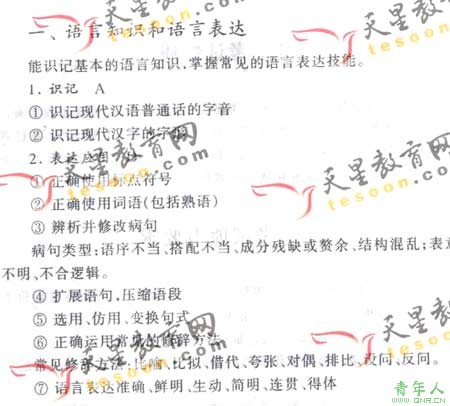 一、语言知识和语言表达
能识记基本的语言知识,掌握常见的语言表达技能。
1. 识记 A
① 识记现代汉语普通话的字音
② 识记现代汉字的字形
2. 表达应用
① 正确使用标点符号
② 正确使用词语(包括熟语)
③ 辨析并修改病句
病句类型:语序不当、搭配不当、成分残缺或赘余、结构混乱;表意
不明、不合逻辑。
④ 扩展语句,压缩语段
⑤ 选用、仿用、变换句式
⑥ 正确运用常见的修辞方法
常见修辞方法:比喻、比拟、借代、夸张、对偶、排比、设问、反问。
⑦ 语言表达准确、鲜明、生动、简明、连贯、得体
天星教育网
tesoon.com
天星教育网
tesoon.com
天星教育网
tesoon.com
天星教育网
tesoon.com
天星教育网
tesoon.com
青年人
www.QNR.CN